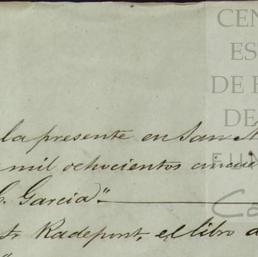 CEN
ES
DE
DE
FUN
la presente en San
mil ochocientos
Garcia"
Radepont, el libro